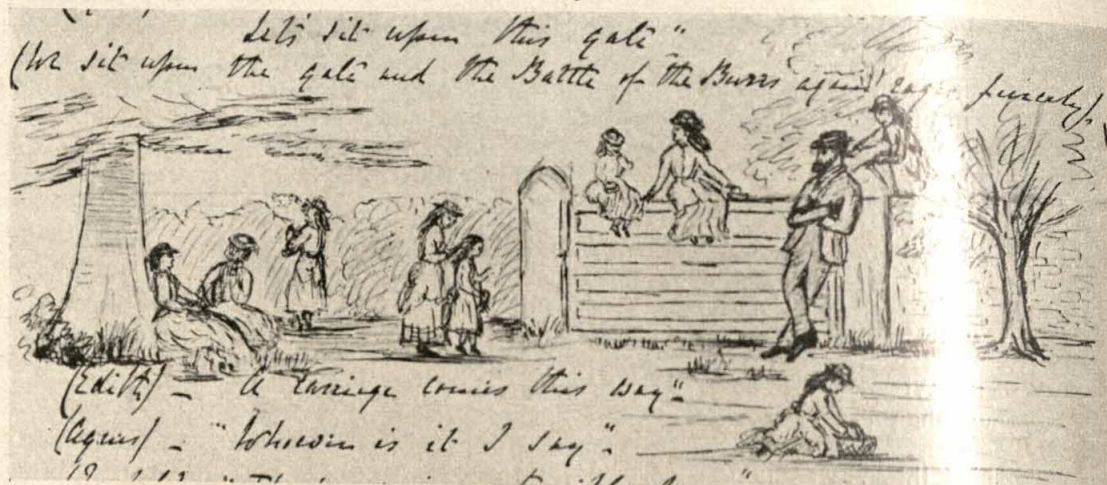 Let's sit upon this gate"
(We sit upon the gate and the Battle of the Burrs again rages fiercely)
(Edith) – A carriage comes this way"–
(Agnes) – "Whoever is it I say"–